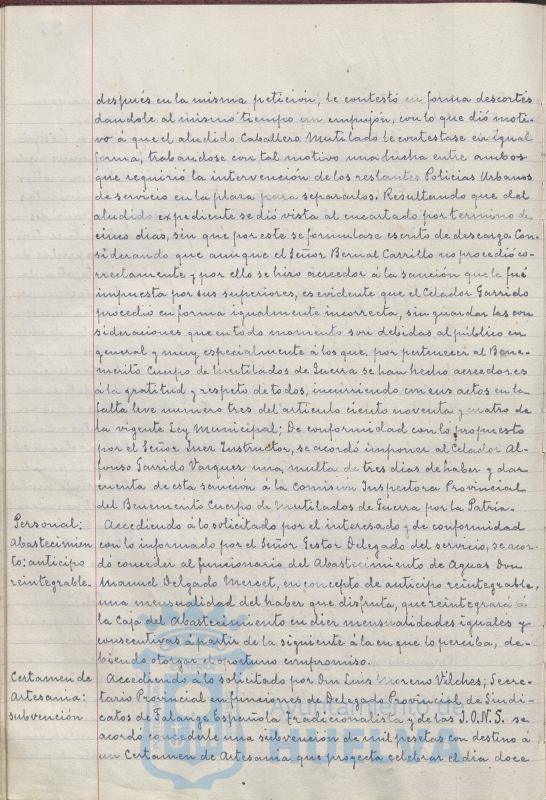 después en la misma petición, le contestó en forma descortés
dandole al mismo tiempo un empujón, con lo que dió moti-
vo á que el aludido Caballero Mutilado le contestase en igual
forma, trabandose con tal motivo una lucha entre ambos
que requirió la intervención de los restantes Policias Urbanos
de servicio en la plaza para separarlos. Resultando que del
aludido expediente se dió vista al encartado por termino de
cinco dias, sin que por este se formulase escrito de descargo. Con-
siderando que aunque el Señor Bernal Carrillo no procedió co-
rrectamente y por ello se hizo acreedor á la sanción que le fué
impuesta por sus superiores, es evidente que el Celador Garrido
procedio en forma igualmente incorrecta, sin guardar las con
sideraciones que en todo momento son debidas al público en
general y muy especialmente á los que por pertenecer al Bene-
merito Cuerpo de Mutilados de Guerra se han hecho acreedores
á la gratitud y respeto de todos, incurriendo con sus actos en la
falta leve numero tres del articulo ciento noventa y cuatro de
la vigente Ley Municipal; De conformidad con lo propuesto
por el Señor Juez Instructor, se acordó imponer al Celador Al-
fonso Garrido Vazquez una multa de tres dias de haber y dar
cuenta de esta sanción á la Comisión Inspectora Provincial
del Benemerito Cuerpo de Mutilados de Guerra por la Patria.
Personal:
Abastecimien
to: anticipo
reintegrable.
Accediendo á lo solicitado por el interesado y de conformidad
con lo informado por el Señor Gestor Delegado del servicio, se acor-
dó conceder al funcionario del Abastecimiento de Aguas Don
Manuel Delgado, en concepto de anticipo reintegrable,
una mensualidad del haber que disfruta, que reintegrará á
la Caja del Abastecimiento en diez mensualidades iguales y
consecutivas á partir de la siguiente á la en que lo perciba, de-
biendo otorgar el oportuno compromiso.
Certamen de
Artesania:
subvención
Accediendo á lo solicitado por Don Luis Moreno Vilches, Secre-
tario Provincial en funciones de Delegado Provincial de Sindi-
catos de Falange Española Tradicionalista y de las J.O.N.S. se
acordó concederle una subvención de mil pesetas con destino á
un Certamen de Artesania que proyecta celebrar el dia doce
Ayuntamiento de
HUELVA